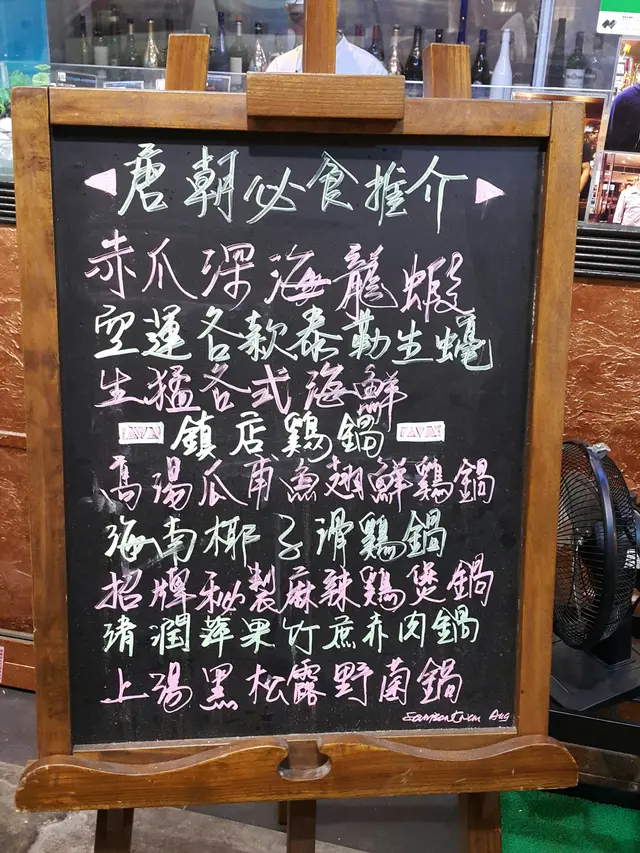 唐朝必食推介
赤爪深海龍蝦
空運各款泰勒生蠔
生猛各式海鮮
鎮店鷄鍋
高湯瓜甫魚翅鮮鷄鍋
海南椰子滑鷄鍋
招牌秘製麻辣鷄煲鍋
清潤苹果竹蔗赤肉鍋
上湯黑松露野菌鍋